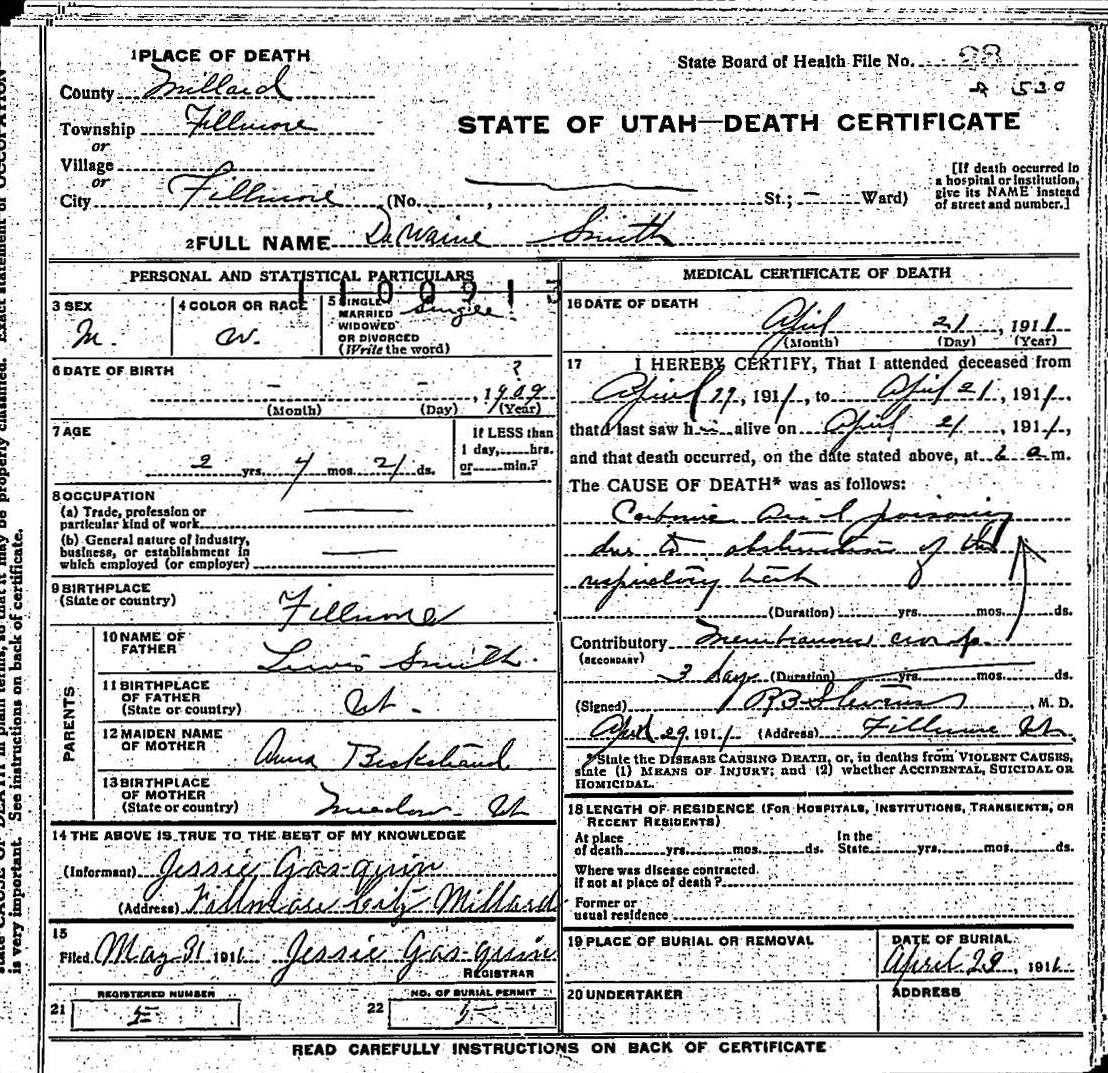 1 PLACE OF DEATH
State Board of Health File No. 28
County Millard
Township Fillmore
or
Village
or
City Fillmore (No. , St.; — Ward)
STATE OF UTAH—DEATH CERTIFICATE
[If death occurred in
a hospital or institution,
give its NAME instead
of street and number.]
2 FULL NAME DeWaine Smith
PERSONAL AND STATISTICAL PARTICULARS
3 SEX
M.
4 COLOR OR RACE
W.
5 SINGLE
MARRIED
WIDOWED
OR DIVORCED
(Write the word)
Single
6 DATE OF BIRTH
— — ?, 1909
(Month) (Day) (Year)
7 AGE
2 yrs. 4 mos. 21 ds.
If LESS than
1 day, hrs.
or min.?
8 OCCUPATION
(a) Trade, profession or
particular kind of work
(b) General nature of industry,
business, or establishment in
which employed (or employer)
9 BIRTHPLACE
(State or country)
Fillmore
PARENTS
10 NAME OF
FATHER
Lewis Smith.
11 BIRTHPLACE
OF FATHER
(State or country)
Ut.
12 MAIDEN NAME
OF MOTHER
Anna Beckstrand
13 BIRTHPLACE
OF MOTHER
(State or country)
Meadow Ut
14 THE ABOVE IS TRUE TO THE BEST OF MY KNOWLEDGE
(Informant) Jessie Gasquin
(Address) Fillmore City Millard
15
Filed May 31 1911 Jessie Gasquin
REGISTRAR
21 REGISTERED NUMBER
5
22 NO. OF BURIAL PERMIT
5
MEDICAL CERTIFICATE OF DEATH
16 DATE OF DEATH
April 21, 1911
(Month) (Day) (Year)
17 I HEREBY CERTIFY, That I attended deceased from
April 19, 1911, to April 21, 1911.
that I last saw h alive on April 21, 1911,
and that death occurred, on the date stated above, at 6 a m.
The CAUSE OF DEATH* was as follows:
Carbonic Acid poisoning
due to obstruction of the
respiratory tract
(Duration) yrs. mos. ds.
Contributory Membranous croup
(SECONDARY)
days (Duration) yrs. mos. ds.
(Signed) R B Stevens, M. D.
April 29, 1911 (Address) Fillmore Ut.
*State the DISEASE CAUSING DEATH, or, in deaths from VIOLENT CAUSES,
state (1) MEANS OF INJURY; and (2) whether ACCIDENTAL, SUICIDAL OR
HOMICIDAL.
18 LENGTH OF RESIDENCE (FOR HOSPITALS, INSTITUTIONS, TRANSIENTS, OR
RECENT RESIDENTS)
At place
of death yrs. mos. ds.
In the
State yrs. mos. ds.
Where was disease contracted,
if not at place of death?
Former or
usual residence
19 PLACE OF BURIAL OR REMOVAL
DATE OF BURIAL
April 23, 1911
20 UNDERTAKER
ADDRESS
READ CAREFULLY INSTRUCTIONS ON BACK OF CERTIFICATE
state CAUSE OF DEATH in plain terms, so that it may be properly classified. Exact statement of OCCUPATION
is very important. See instructions on back of certificate.